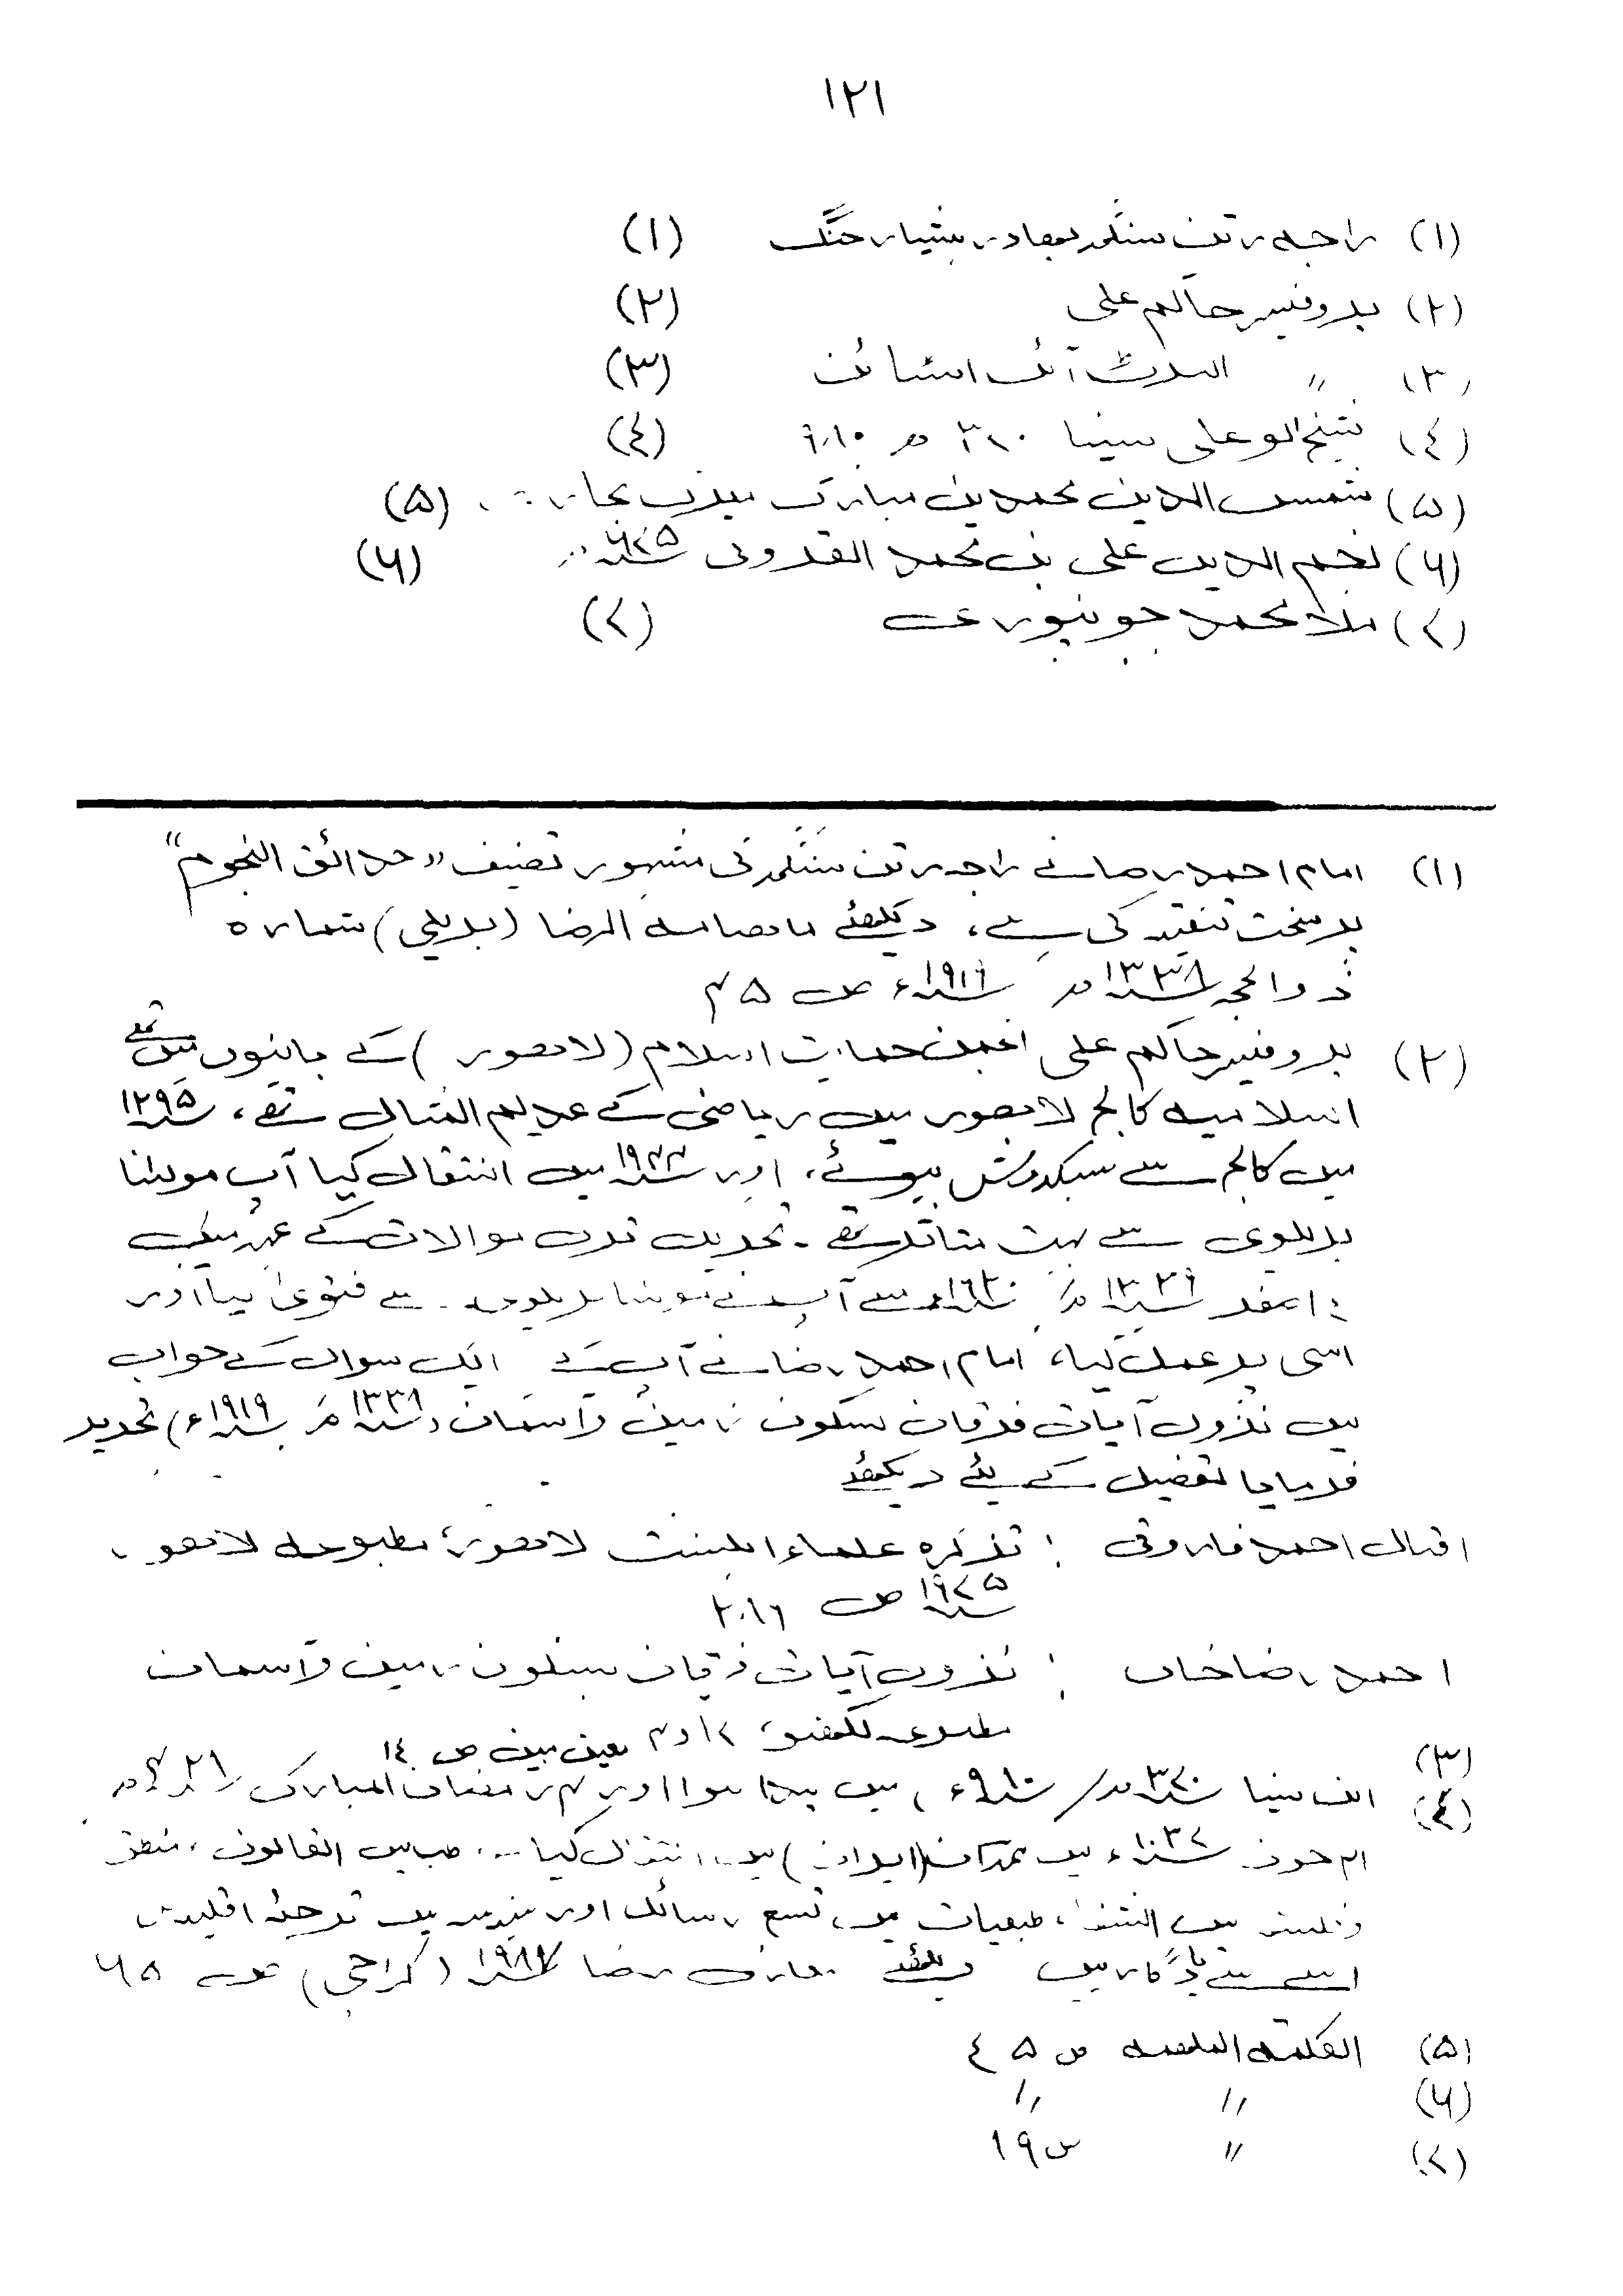 ۱۲۱
(۱) راجہ رتن سنگھ بہادر ہشیار جنگ (۱)
(۲) پروفیسر حاکم علی (۲)
(۳) 〃 البرٹ آئن اسٹائن (۳)
(٤) شیخ ابو علی سینا (٤)
(۵) شمس الدین محمد بن مبارک میرک بخاری (۵)
(۶) نجم الدین علی بن محمد القزونی ۶۷۵ (۶)
(۷) ملا محمد جونپوری (۷)
(۱) امام احمد رضا نے راجہ رتن سنگھ کی مشہور تصنیف "حدائق النجوم"
پر سخت تنقید کی ہے، دیکھئے ماہنامہ الرضا (بریلی) شمارہ
ذوالحجہ ۱۳۳۸ھ ۱۹۱۹ء ص ۵
(۲) پروفیسر حاکم علی انجمن حمایت اسلام (لاہور) کے بانیوں میں تھے
اسلامیہ کالج لاہور میں ریاضی کے عدیم المثال تھے، ۱۲۹۵
میں کالج سے سبکدوش ہوئے، اور میں انتقال کیا آپ مولانا
بریلوی سے بہت متاثر تھے۔ تحریک ترک موالات کے
سے آپ نے مولانا بریلوی سے فتویٰ لیا اور
اسی پر عمل کیا، امام احمد رضا نے آپ کے ایک سوال کے جواب
میں نزول آیات فرقان بسکون زمین و آسمان (۱۳۳۸ھ ۱۹۱۹ء) تحریر
فرمایا تفصیل کے لئے دیکھئے
اقبال احمد فاروقی : تذکرہ علماء اہلسنت لاہور، مطبوعہ لاہور
۱۹۷۵ ص
احمد رضا خاں : نزول آیات فرقان بسکون زمین و آسمان
مطبوعہ لکھنؤ،
(۳) معین مبین ص ١٤
(٤) ابن سینا ۳۷۰ھ/۹۸۰ء میں پیدا ہوا اور رمضان المبارک
۱۰۳۷ء میں ہمدان (ایران) میں انتقال کیا طب میں القانون، منطق
و فلسفہ میں الشفا، طبعیات میں تسع رسائل اور ہندسہ میں ترجمہ اقلیدس
اس سے یادگار ہیں دیکھئے معارف رضا (کراچی) ص ۶۵
(۵) الکلمۃ الملہمہ ص ۵٤
(۶) 〃 〃
(۷) 〃 ص ۱۹